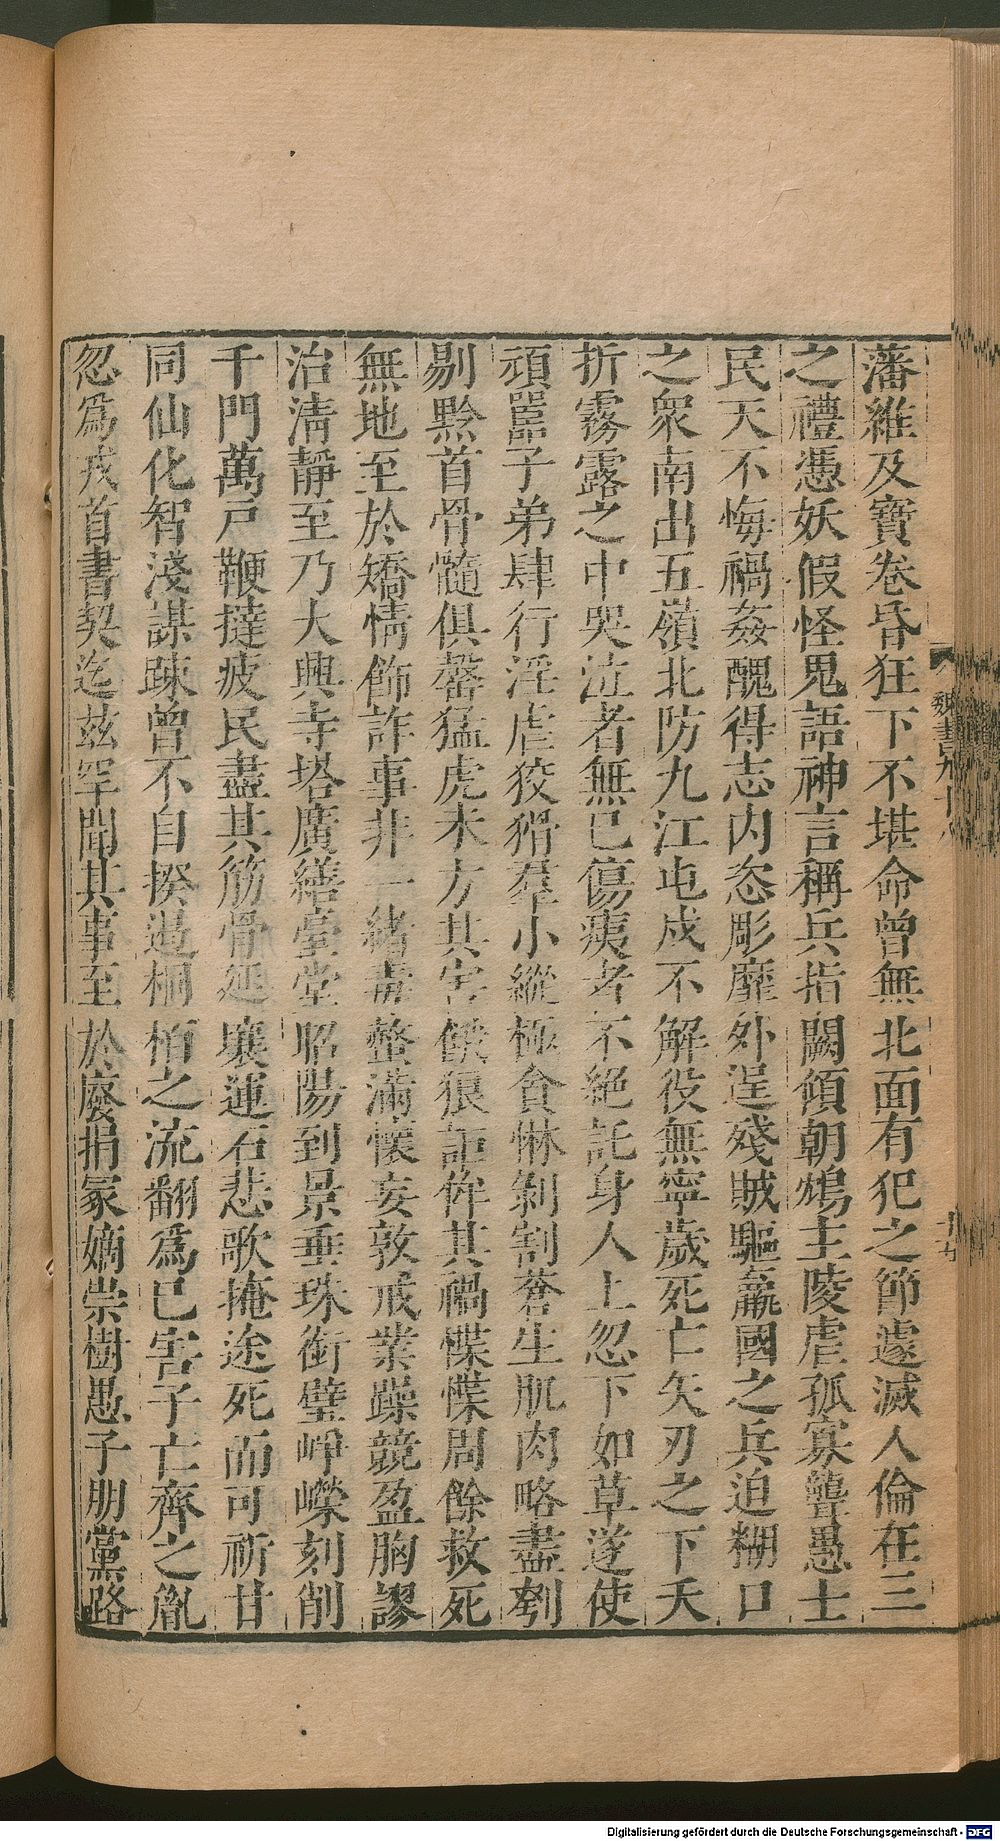 藩維及寶卷昏狂下不堪命曾無北面有犯之節遽滅人倫在三
之禮憑妖假怪鬼語神言稱兵指闕傾朝鴆主陵虐孤寡聾愚士
民天不悔禍姦醜得志内恣彫靡外逞殘賊驅羸國之兵迫糊口
之衆南出五嶺北防九江屯戍不解役無寧歲死亡矢刃之下夭
折霧露之中哭泣者無已傷痍者不絶託身人上忽下如草遂使
頑嚚子弟肆行淫虐狡猾羣小縱極貪惏剝割蒼生肌肉略盡刳
剔黔首骨髓俱罄猛虎未方其害餓狼詎侔其禍惵惵周餘救死
無地至於矯情飾詐事非一緒毒螫滿懷妄敦戒業躁競盈胸謬
治清靜至乃大興寺塔廣繕臺堂昭陽到景垂珠銜璧崢嶸刻削
千門萬戸鞭撻疲民盡其筋骨延壤運石悲歌掩途死而可祈甘
同仙化智淺謀疎曾不自揆遏桐柏之流翻爲已害子亡齊之胤
忽爲戎首書契迄玆罕聞其事至於廢捐冢嫡崇樹愚子朋黨路
魏書九十八
十七
Digitalisierung gefördert durch die Deutsche Forschungsgemeinschaft - DFG